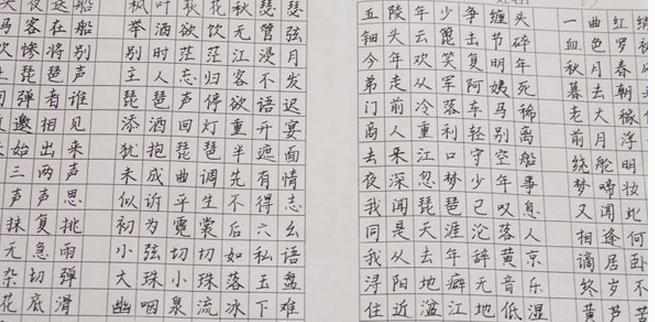 夜送 枫叶荻花秋瑟瑟
马客在船 举酒欲饮无管弦
惨将别 别时茫茫江浸月
琵琶声 主人忘归客不发
弹者谁 琵琶声停欲语迟
邀相见 添酒回灯重开宴
始出来 犹抱琵琶半遮面
三两声 未成曲调先有情
声声思 似诉平生不得志
抹复挑 初为霓裳后六幺
无急雨 小弦切切如私语
杂切弹 大珠小珠落玉盘
花底滑 幽咽泉流冰下难
五陵年少争缠头 一曲红绡
钿头云篦击节碎 血色罗
今年欢笑复明年 秋月春
弟走从军阿姨死 暮去朝
门前冷落车马稀 老大嫁
商人重利轻别离 前月浮
去来江口守空船 绕舱明
夜深忽梦少年事 梦啼妆
我闻琵琶已叹息 又闻此
同是天涯沦落人 相逢何
我从去年辞黄京 谪居卧
浔阳地癖无音乐 终岁不
住近湓江地低湿 黄芦苦